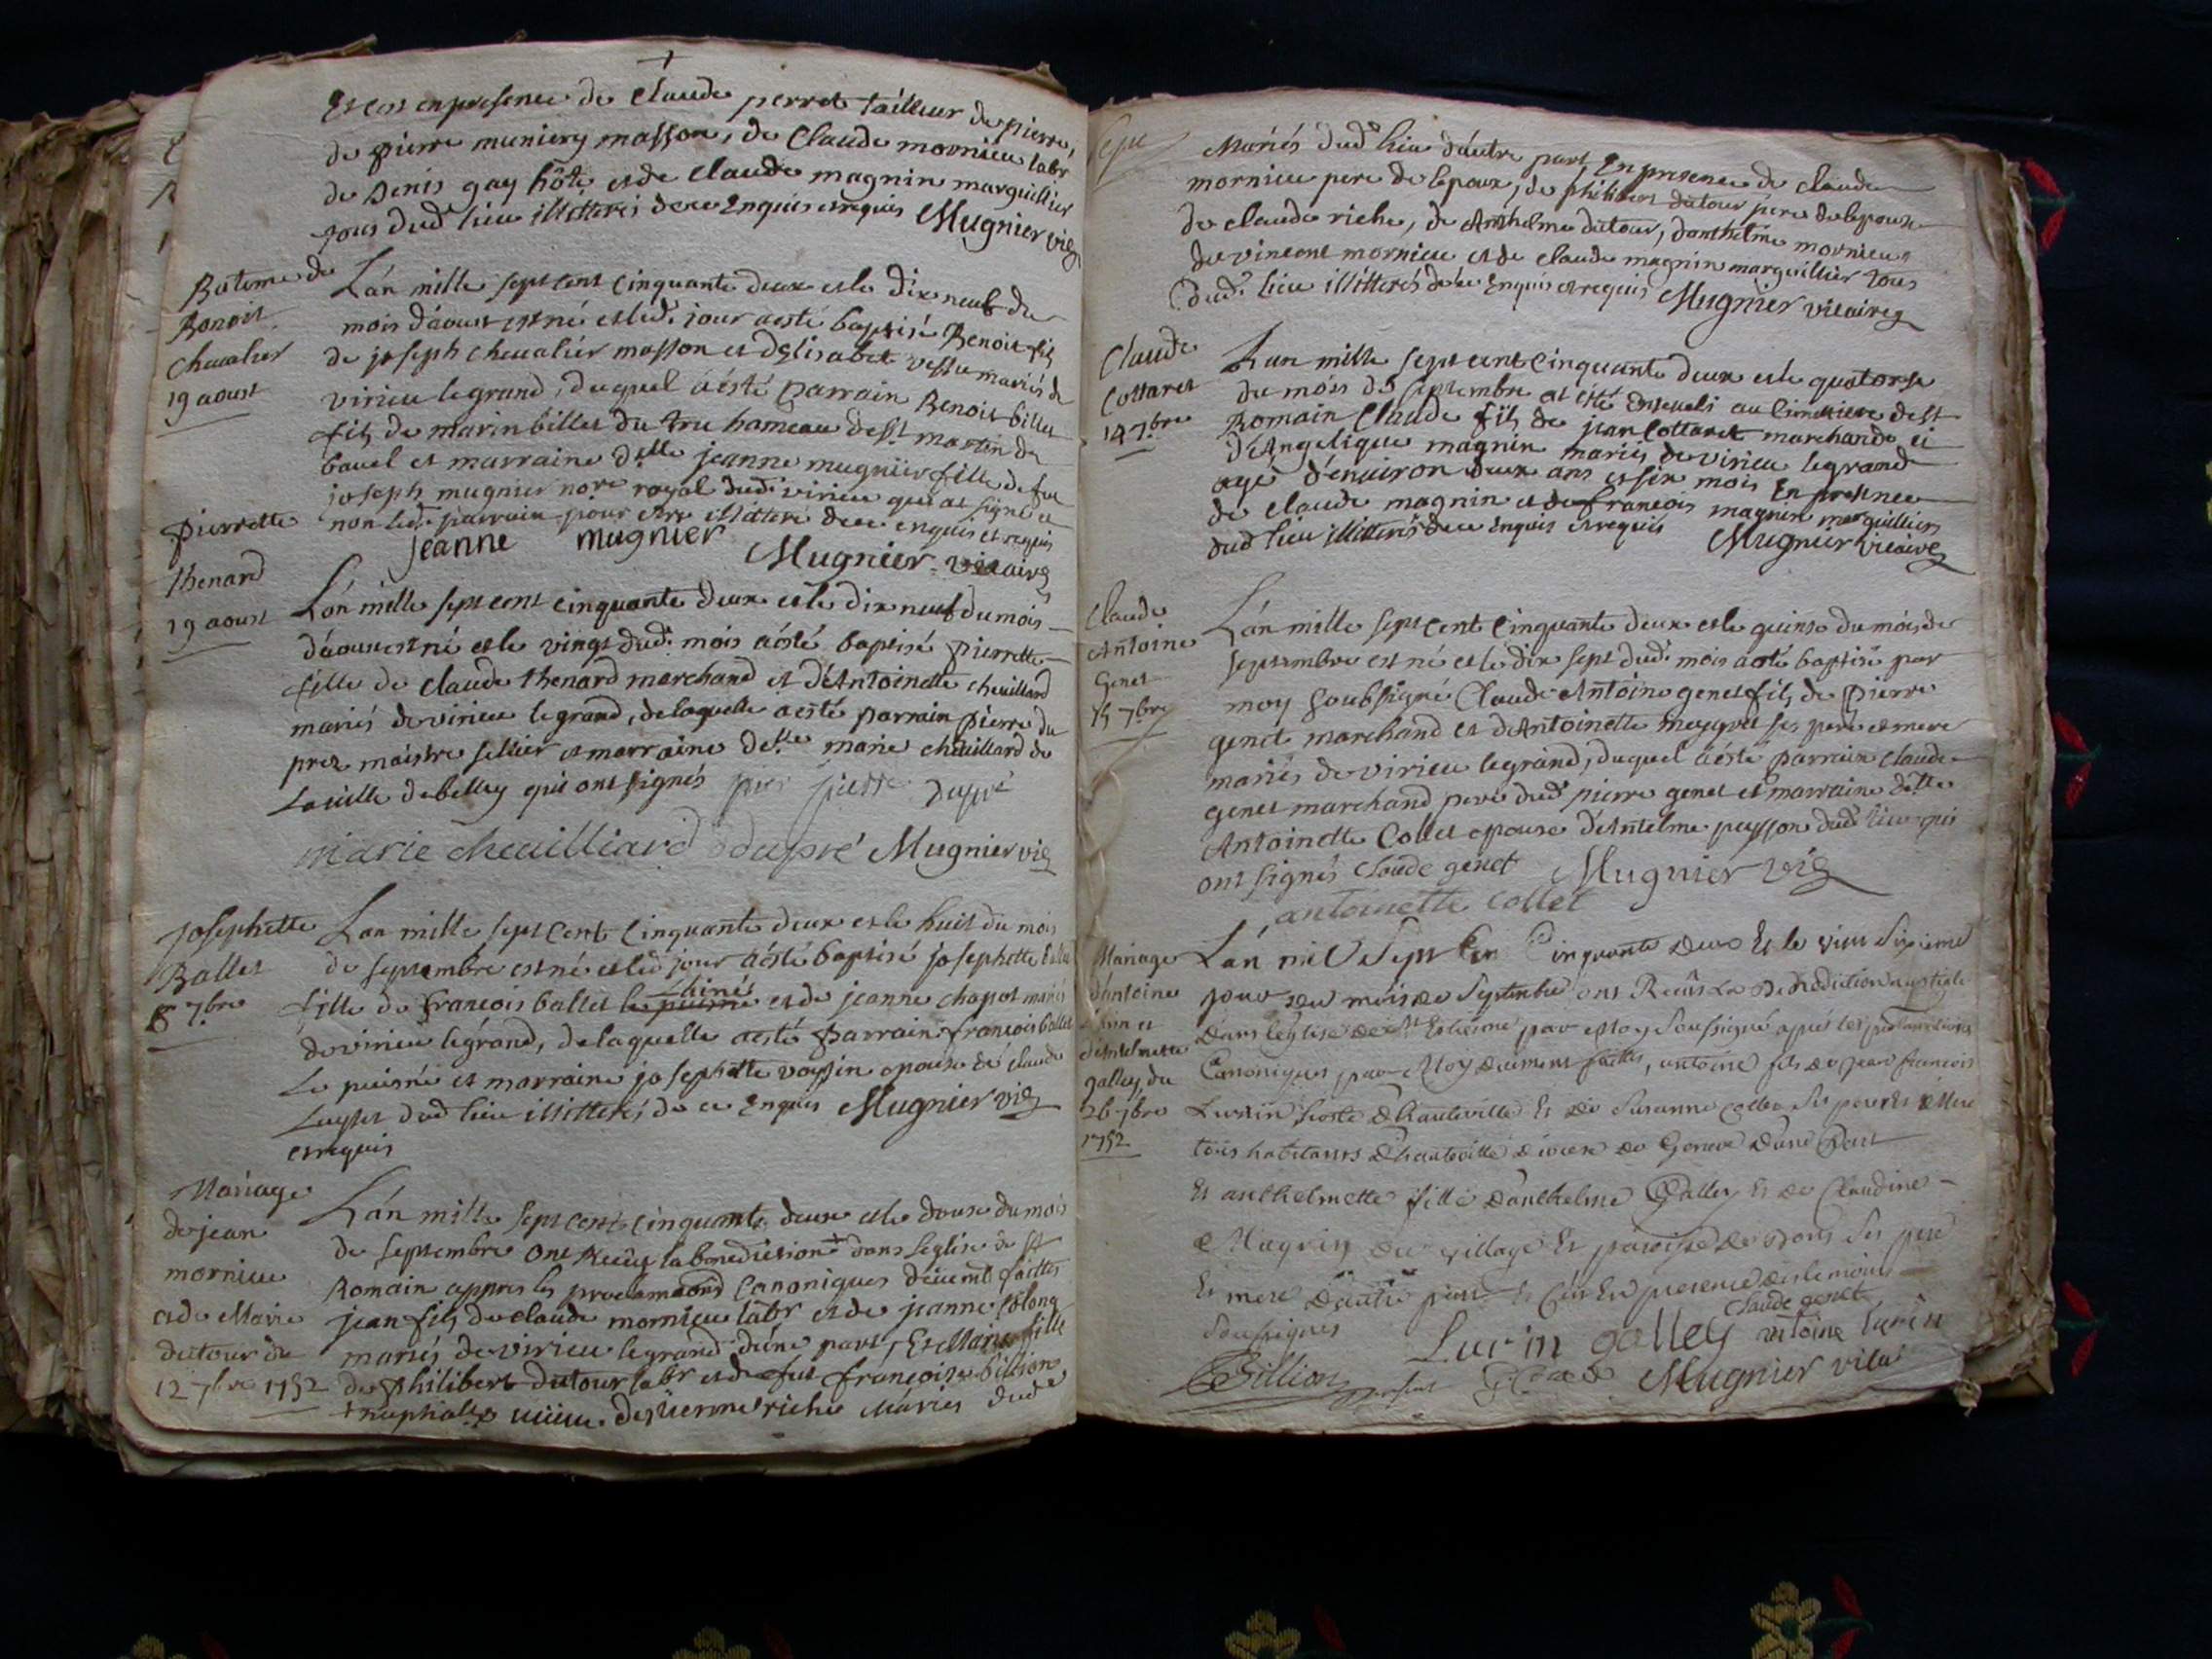 Et ces en presence de Claude perret tailleur de pierre,
de pierre muniery masson, de Claude mornieu labr
de Denis gay hôte et de Claude magnin marguillier
tous dud lieu illitterés de ce Enquis et requis Mugnier vic
Bateme de
Benoit
Chevalier
19 aoust
L'an mille sept cent Cinquante deux et le dix neuf du
mois d'aoust est né et led. jour a esté baptisé Benoit fils
de joseph chevalier masson et d'Elisabet vestu mariés de
virieu le grand, duquel a esté parrain Benoit billet
fils de marin billet du hameau de St martin de
bavel et marraine Delle jeanne mugnier fille de feu
joseph mugnier nore royal dud. virieu qui at signé et
non led. parrain pour etre illitteré de ce enquis et requis
jeanne mugnier Mugnier vicaire
pierrette
thenard
19 aoust
L'an mille sept cent cinquante deux et le dix neuf du mois
d'aoust est né et le vingt dud. mois a esté baptisé pierrette
fille de Claude thenard marchand et d'Antoinette cheuillard
mariés de virieu le grand, de laquelle a esté parrain pierre du
prez maistre sellier et marraine Delle marie cheuillard de
la ville de belley qui ont signés pierre dupré
marie cheuilliard dupré Mugnier vic
josephette
Ballet
8 7bre
L'an mille sept Cent Cinquante deux et le huit du mois
de septembre est né et led jour a esté baptisé josephette
fille de francois ballet le puisné et de jeanne chapot mariés
L'ainés
de virieu le grand, de laquelle a esté parrain francois ballet
Le puisné et marraine josephette voysin epouse de claude
dud lieu illitterés de ce Enquis Mugnier vic
et requis
Mariage
de jean
mornieu
et de Marie
dutour du
12 7bre 1752
L'an mille sept cent Cinquante deux et le douze du mois
de septembre ont Reçu la benediction + dans l'eglise de St
Romain appres les proclamaond Canoniques düement faittes
jean fils de claude mornieu labr et de jeanne Colong
mariés de virieu le grand d'une part, Et Marie fille
de philibert dutour labr et de feue francoise billion
+ nuphialle veuve d'etienne riche Mariés dude
Mariés dud lieu d'autre part, En presence de claude
mornieu pere de l'epoux, de philibert dutour pere de l'epouse
de claude riche, de Anthelme dutour, d'anthelme mornieu
de vincent mornieu et de claude magnin marguillier tous
dud. lieu illitterés de ce Enquis et requis Mugnier vicaire
Claude
Cottaret
14 7bre
L'an mille sept cent Cinquante deux et le quatorse
du mois de septembre at esté Enseveli au Cimetiere de St
Romain Claude fils de jean Cottaret marchand et
d'Angelique magnin mariés de virieu le grand
agé d'environ deux ans et six mois En presence
de claude magnin et de francois magnin marguilliers
dud lieu illitterés de ce Enquis et requis Mugnier vicaire
Claude
Antoine
Genet
15 7bre
L'an mille sept Cent Cinquante deux et le quinse du mois de
septembre est né et le dix sept dud. mois a esté baptisé par
moy soubsigné Claude Antoine genet fils de pierre
genet marchand et d'Antoinette ses pere et mere
mariés de virieu le grand, duquel a esté parrain claude
genet marchand pere dud. pierre genet et marraine delle
Antoinette Collet epouse d'Antelme peysson dud lieu qui
ont signés Claude genet Mugnier vic
antoinette collet
Mariage
d'antoine
Lurin et
d'Antelmette
galley, du
26 7bre
1752
L'an mil Sept Cen Cinquante deux Et le vint Sixieme
jour du mois de Septembre ont Reçus La Benediction nuptiale
Dans l'eglise de St Estienne par Moy Soussigné après les proclamations
Canoniques par Moy düement faittes, antoine fils de Jean francois
Lurin hoste d'hauteville Et de Susanne ses pere Et Mere
tous habitants d'hauteville diocese de Geneve d'une Part
Et anthelmette fille d'anthelme Galley Et de Claudine
Magnin du village Et paroisse de ses pere
Et mere D'autre part Et Ces En presence des temoins
Soussignes Claude genet
Lurin galley antoine Lurin
Billion Mugnier vicai